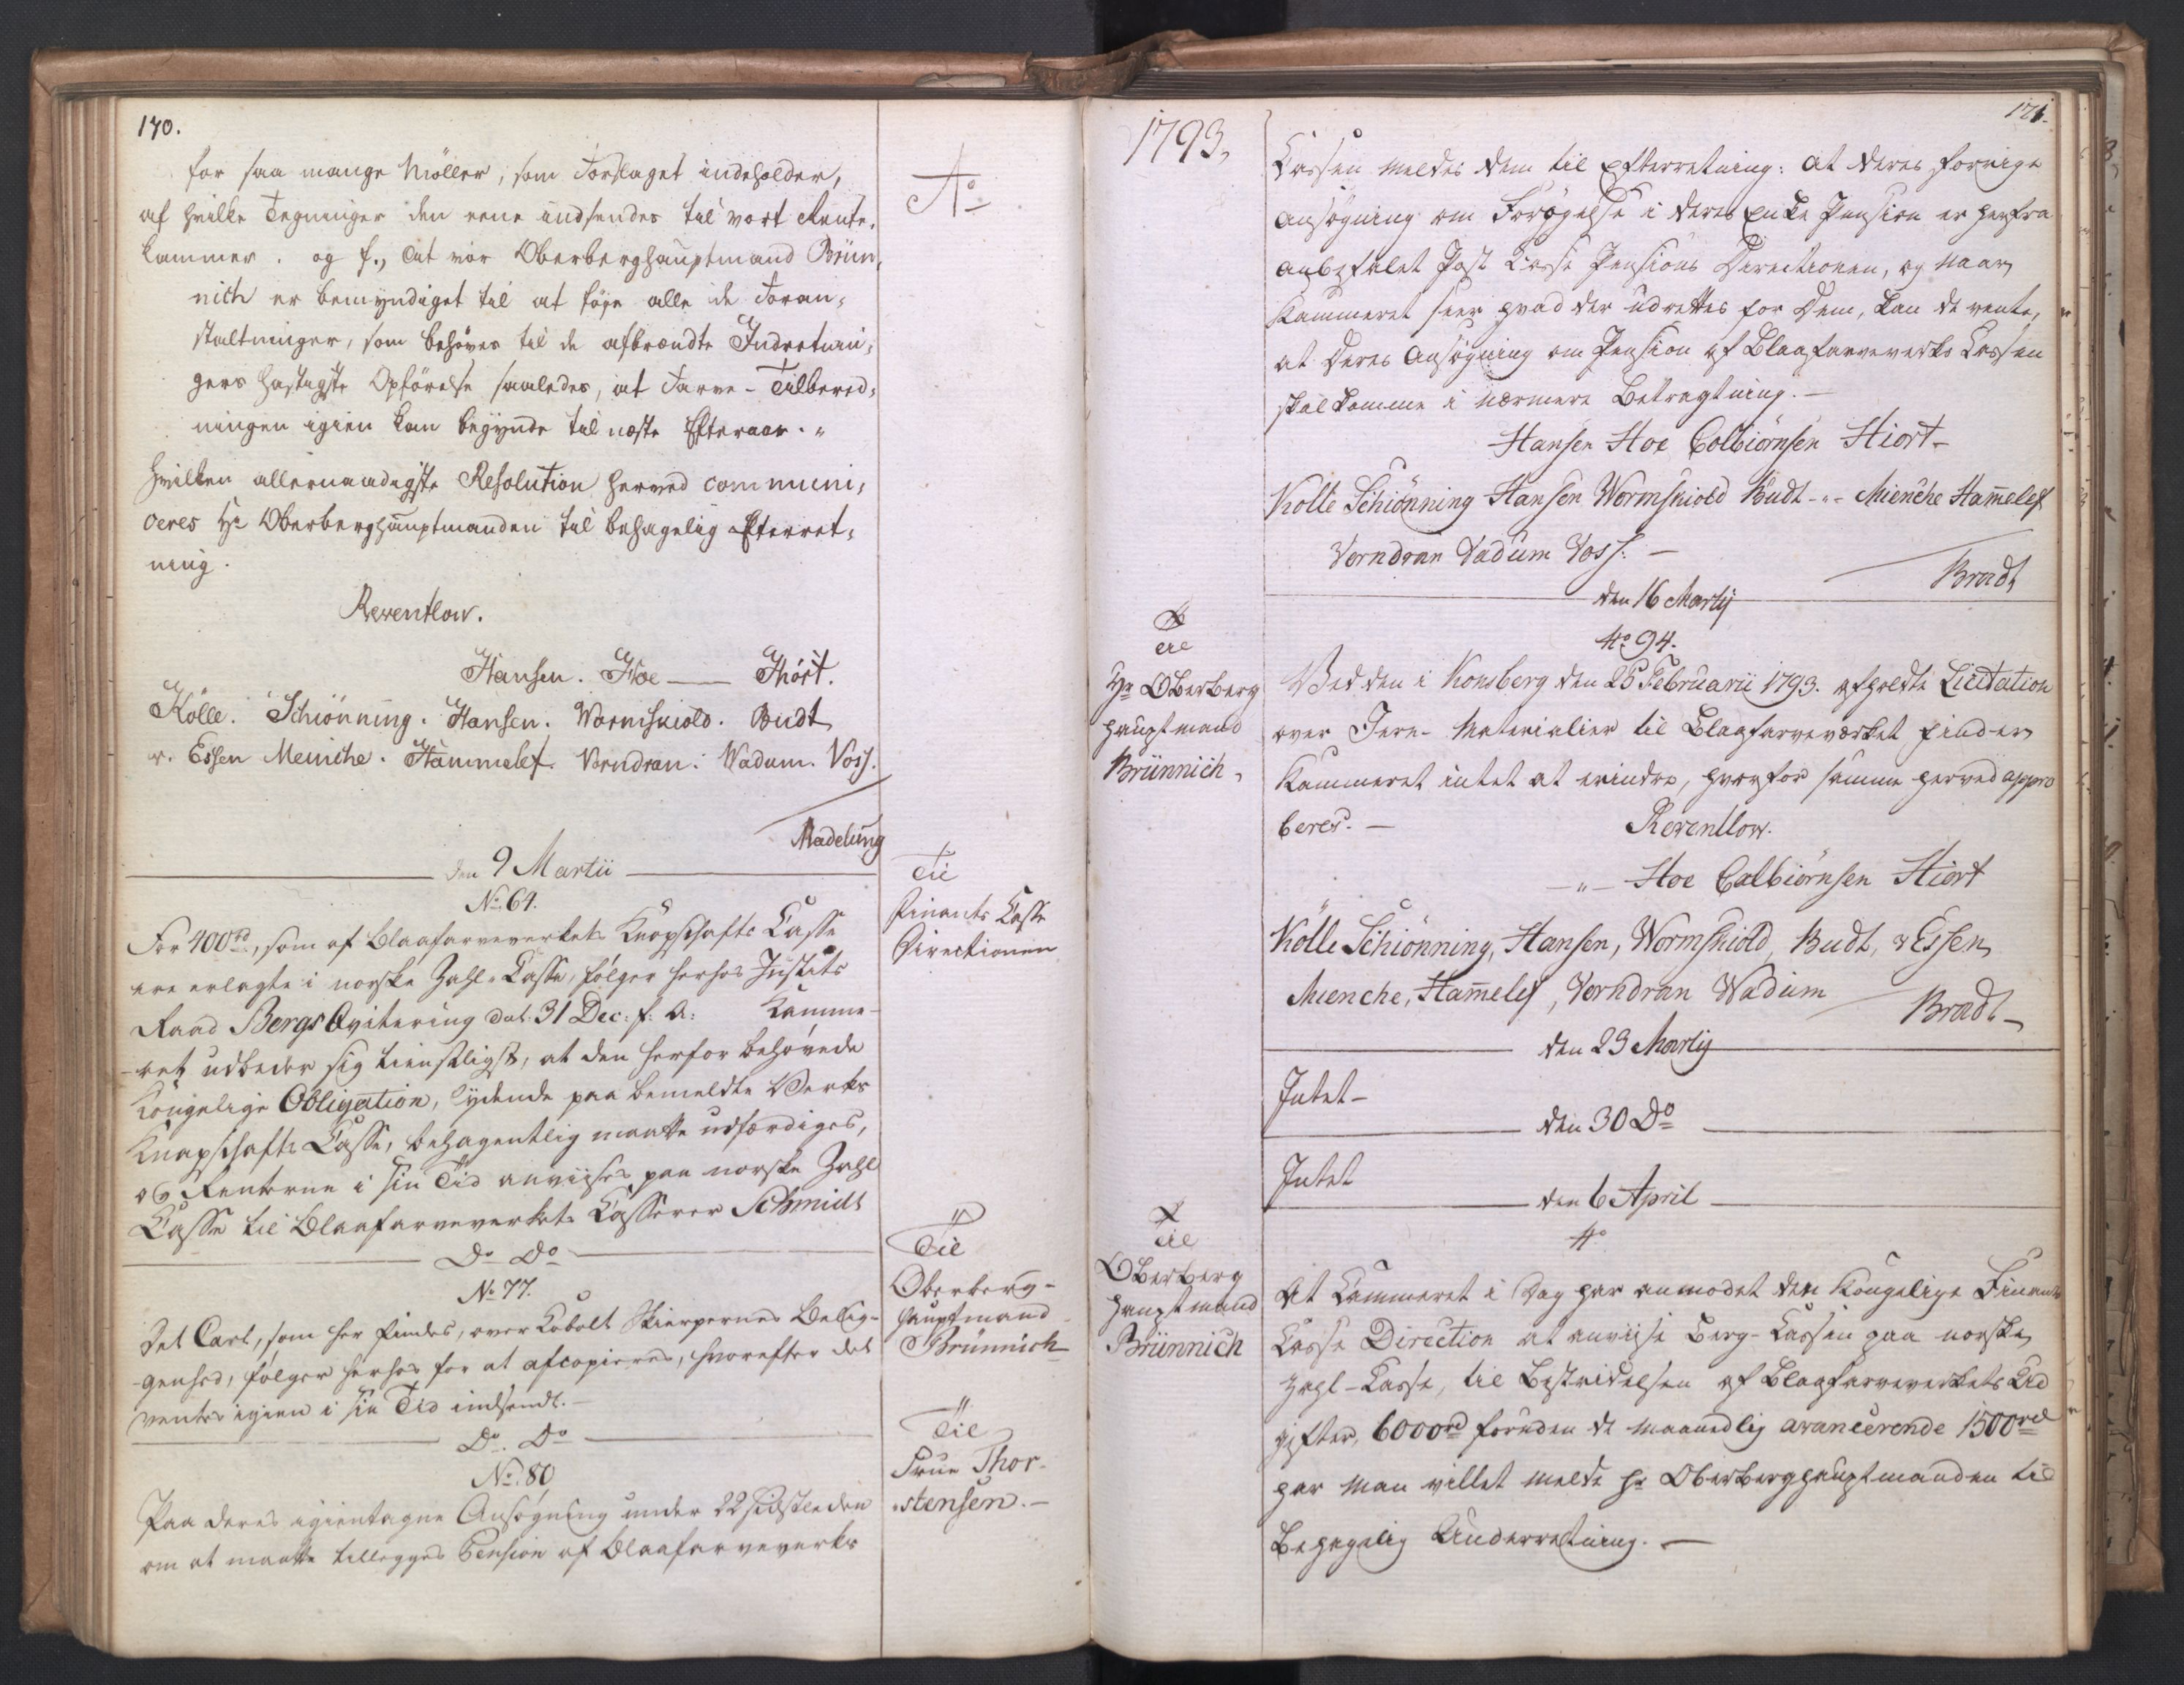 170.
for saa mange Möller, som Forslaget indeholder,
af hvilke Tegninger den eene indsendes til vort Rente-
kammer. og f., at vor Oberberghauptmand Brün-
nich er bemyndiget til at føje alle de Foran-
staltninger, som behöves til de afbrændte Indretnin-
gers hastigste Opförelse saaledes, at Farve-Tilbered-
ningen igien kan begynde til næste Efteraar."
hvilken allernaadigste Resolution herved communi-
ceres Hr Oberberghauptmanden til behagelig Efterret-
ning.
Reventlow.
Hansen. Hoe — Hiort.
Kölle. Schiönning. Hansen. Wormskiold. Budt
v. Essen Meinche. Hammelef. Vorndran. Wadum. Voss.
Madelung
Ao
den 9 Martii
No. 64.
Til
Finants Casse
Directionen
For 400 rd, som af Blaafarveverkets Knapschafts Casse
ere erlagte i norske Zahl-Casse, følger herhos Justits
Raad Bergs Qvitering dat. 31 Dec. f. A. Kamme-
ret udbeder sig tienstligst, at den herfor behøvede
Kongelige Obligation, lydende paa bemeldte Verks
Knapschafts Casse, behagentlig maatte udfærdiges,
og Renterne i sin Tid anviises paa norske Zahl
Casse til Blaafarveverkets Casserer Schmidt
Do Do
No 77.
Til
Oberberg-
hauptmand
Brünnich
Det Cart, som her findes, over Cobolt Skierpernes Belig-
genhed, følger herhos for at afcopieres, hvorefter det
ventes igien i sin Tid indsendt.
Do. Do
No. 80
Til
Frue Thor-
stensen.
Paa deres igientagne Ansøgning under 22 sidstleden
om at maatte tillegges Pension af Blaafarveverks
1793,
171.
Cassen meldes dem til Efterretning: at deres forrige
Ansøgning om Forøgelse i deres Enke Pension er herfra
anbefalet Post Casse Pensions Directionen, og naar
Kammeret seer hvad der udrettes for Dem, kan de vente,
at deres Ansøgning om Pension af Blaafarveverks Cassen
skal komme i nærmere Betragtning.
Hansen Hoe Colbiörnsen Hiort
Kölle Schiönning Hansen Wormskiold Budt -"- Mienche Hamelef
Vorndran Vadum Voss.
Bradt
den 16 Martij
No 94.
Til
Hr Oberberg
hauptmand
Brünnich
Ved den i Konsberg den 25 Februarii 1793. afholdte Licitation
over Jern-Materialier til Blaafarveværket finder
Kammeret intet at erindre, hvorfor samme herved appro
beres.
Reventlow.
-"- Hoe Colbiörnsen Hiort
Kölle Schiönning, Hansen, Wormskiold, Budt, v Essen
Mienche, Hamelef, Vorndran Wadum
Bradt
den 23 Martij
Intet
den 30 Do
Intet
den 6 April
No
Til
Oberberg
hauptmand
Brünnich
At Cammeret i Dag har anmodet den Kongelige Finants
Casse Direction at anviise Berg-Cassen paa norske
Zahl-Casse, til Bestridelsen af Blaafarveverkets Ud
gifter, 6000 rd foruden de maanedlig avancerende 1500 rd
har man villet melde Hr Oberberghauptmanden til
behagelig Underretning.